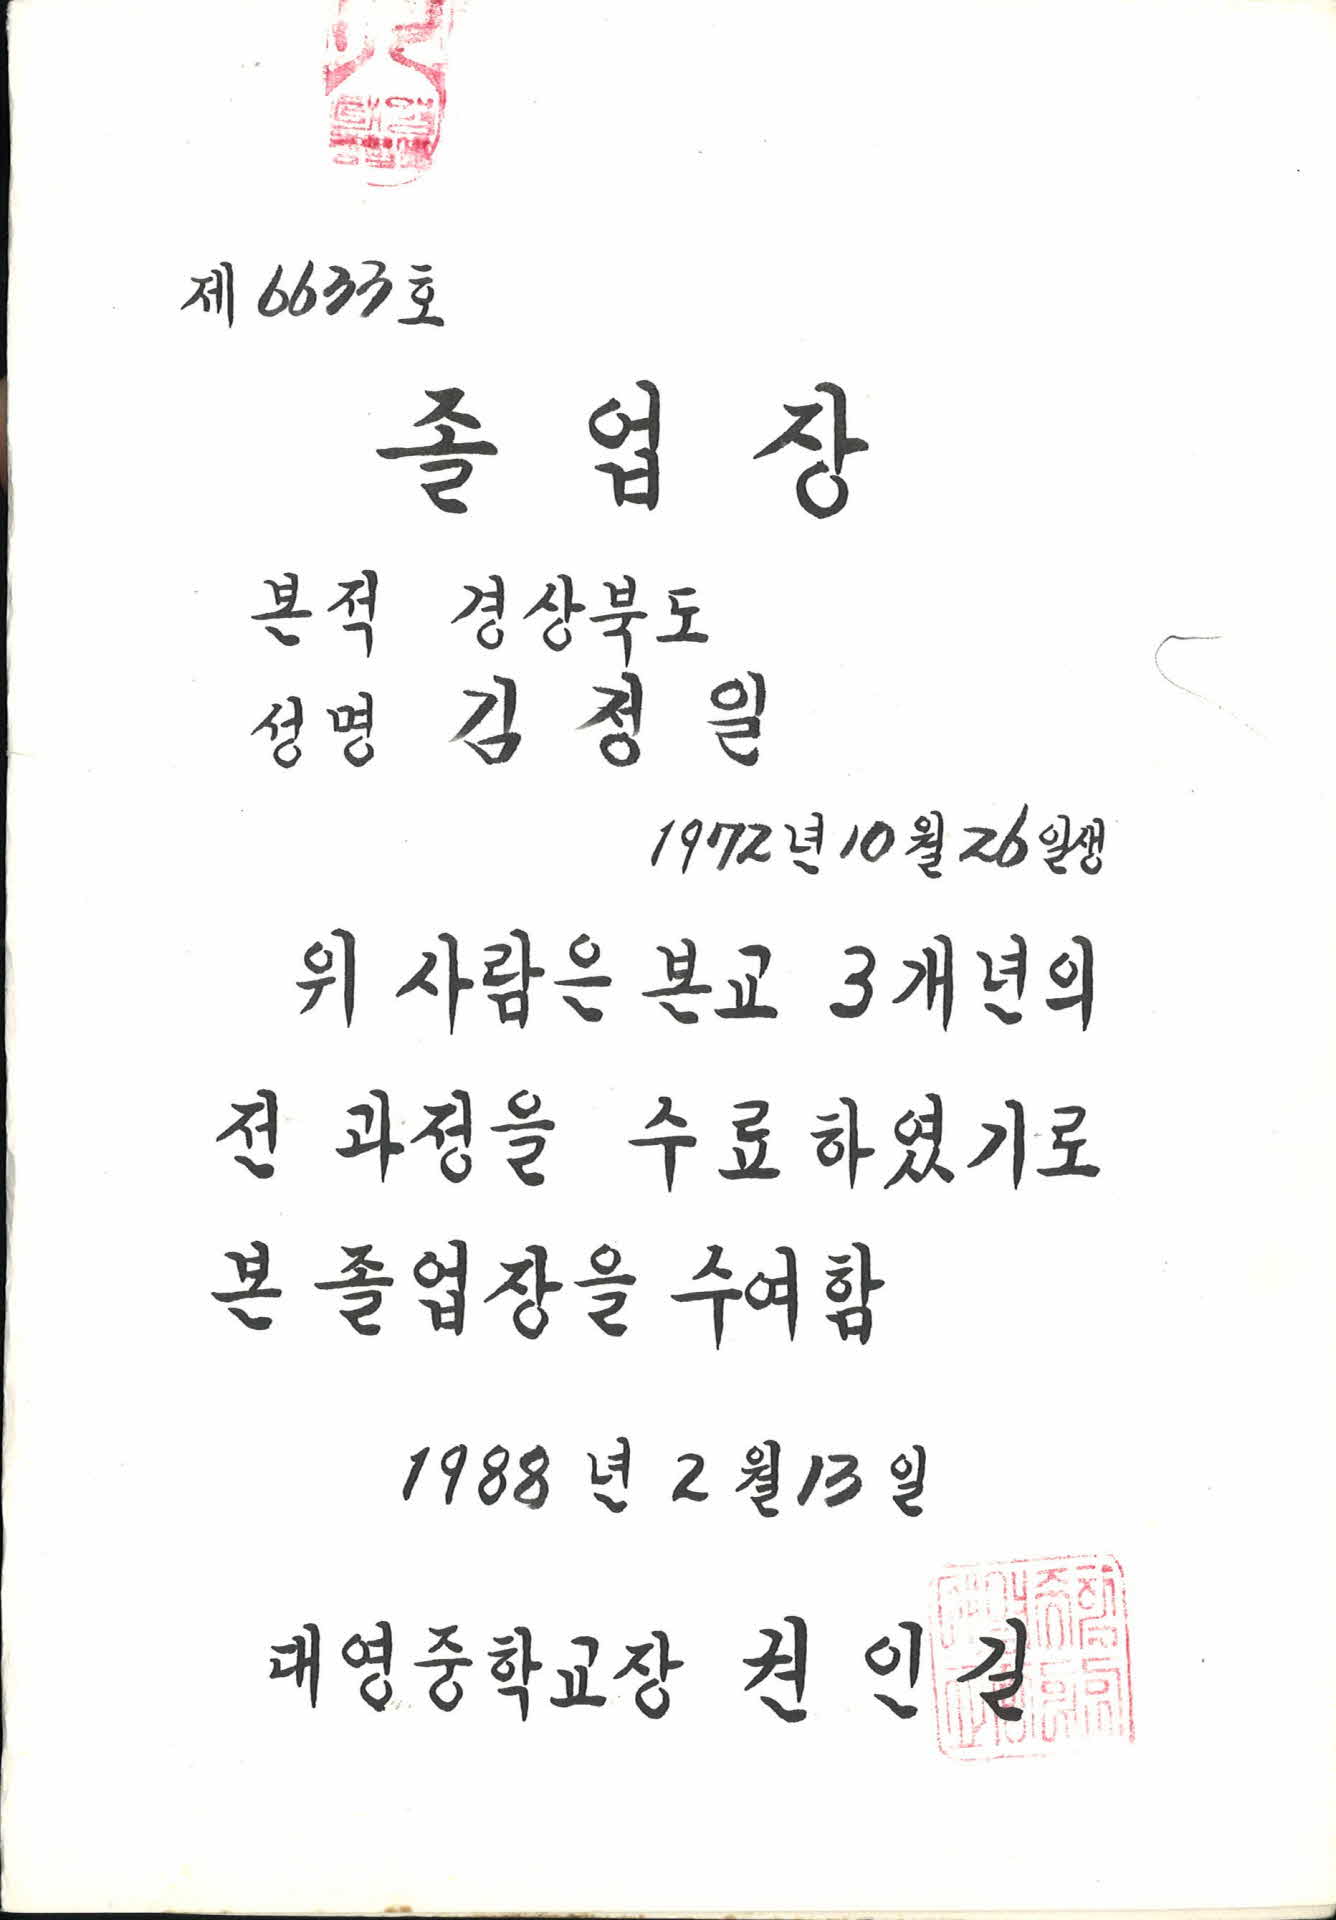 제 6633 호
졸업장
본적 경상북도
성명 김정일
1972년 10월 26일생
위 사람은 본교 3개년의
전 과정을 수료하였기로
본 졸업장을 수여함
1988년 2월 13일
대영중학교장 권인길